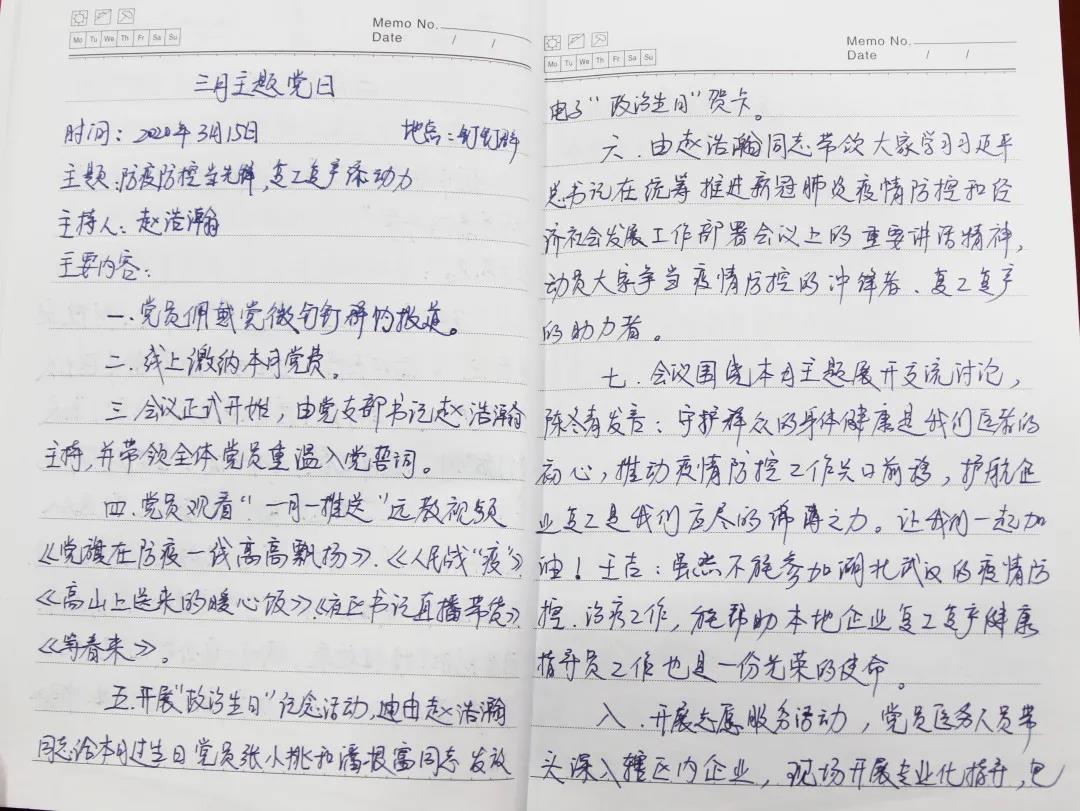 Memo No.
Mo Tu We Th Fr Sa Su
Date / /
三月主题党日
时间：2020年3月15日 地点：钉钉群
主题：防疫防控当先锋，复工复产添动力
主持人：赵浩瀚
主要内容：
一、党员佩戴党徽钉钉群内报道。
二、线上缴纳本月党费。
三、会议正式开始，由党支部书记赵浩瀚
主持，并带领全体党员重温入党誓词。
四、党员观看“一月一推送”远教视频
《党旗在防疫一线高高飘扬》、《人民战“疫”》
《高山上送来的暖心饭》《在区书记直播带货》
《等春来》。
五、开展“政治生日”纪念活动，由赵浩瀚
同志给本月过生日党员张小桃和潘根富同志发放
Memo No.
Mo Tu We Th Fr Sa Su
Date / /
电子“政治生日”贺卡。
六、由赵浩瀚同志带领大家学习习近平
总书记在统筹推进新冠肺炎疫情防控和经
济社会发展工作部署会议上的重要讲话精神，
动员大家争当疫情防控的冲锋者、复工复产
的助力者。
七、会议围绕本月主题展开交流讨论，
陈冬青发言：守护群众的身体健康是我们医者的
初心，推动疫情防控工作关口前移，护航企
业复工是我们应尽的绵薄之力。让我们一起加
油！王吉：虽然不能参加湖北武汉的疫情防
控、治疗工作，能帮助本地企业复工复产健康
指导员工作也是一份光荣的使命。
八、开展志愿服务活动，党员医务人员带
头深入辖区内企业，现场开展专业化指导，包